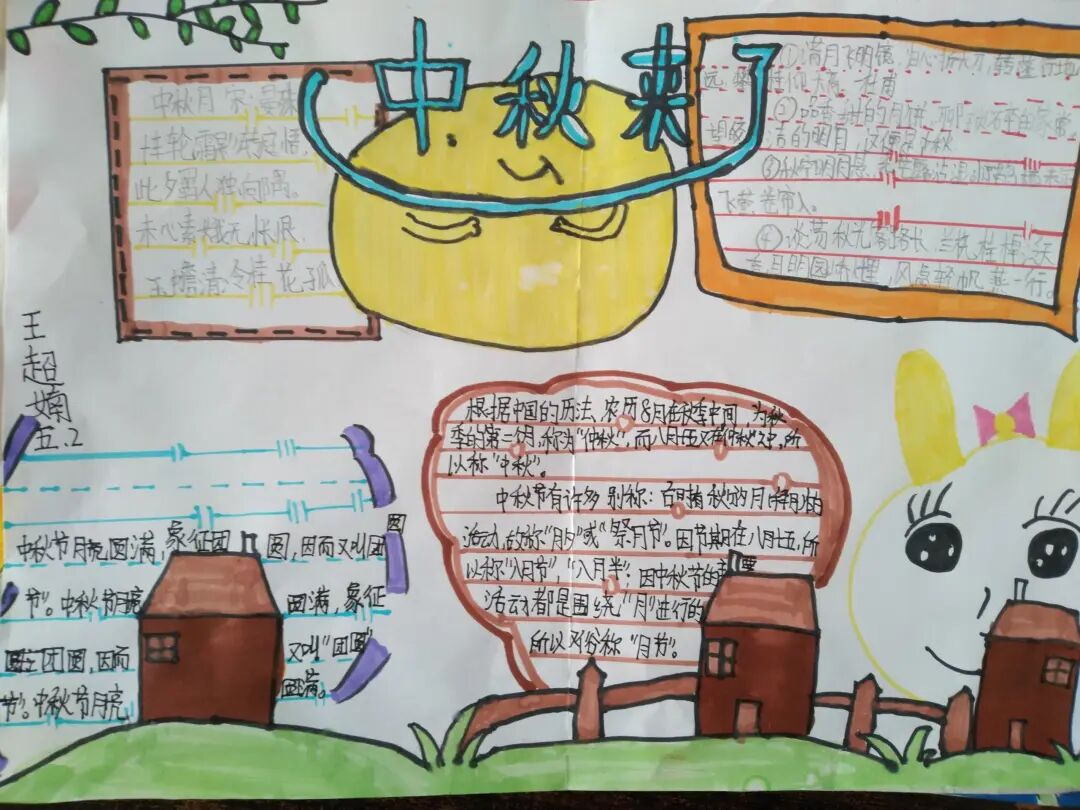 中秋来了
中秋月 宋·晏殊
十轮霜影转庭梧,
此夕羁人独向隅。
未必素娥无怅恨,
玉蟾清冷桂花孤
①满月飞明镜,
远,攀桂仰天高 杜甫
②品香甜的月饼,
洁的明月,这便是中秋
③秋空明月悬,
飞萤卷帘入。
④
风点轻帆
一行。
王超婻
五.2
中秋节月亮圆满,象征团圆,因而又叫团
节”。中秋节月亮圆满,象征
团圆,因而又叫“团圆
节”。中秋节月亮圆满。
根据中国的历法、农历8月在秋季中间,为秋
季的第二个月,称为“仲秋”,而八月十五又在“仲秋”之中,所
以称“中秋”。
中秋节有许多别称:
活动,故称“月夕”或“祭月节”。因节期在八月十五,所
以称“八月节”,“八月半”;因中秋节的主要
活动都是围绕“月”进行的
所以又俗称“月节”。